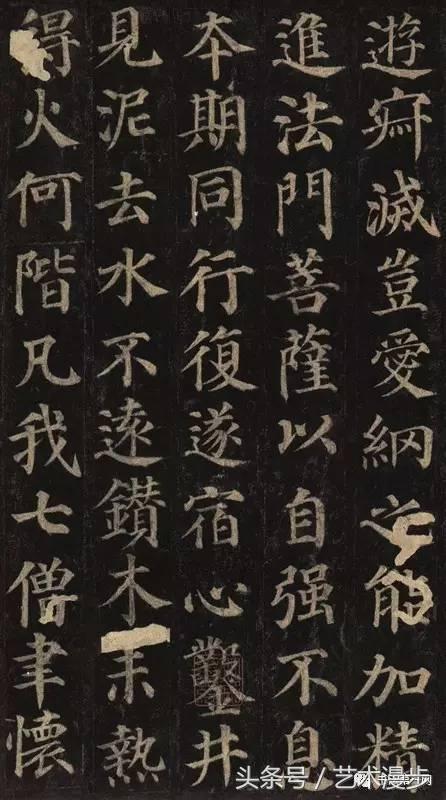 遊㝛滅豈愛綱之能加精
進法門菩薩以自强不息
夲期同行復遂宿心鑿井
見泥去水不遠鑽木未熱
得火何階凡我七僧聿懷
头条号／艺术漫步